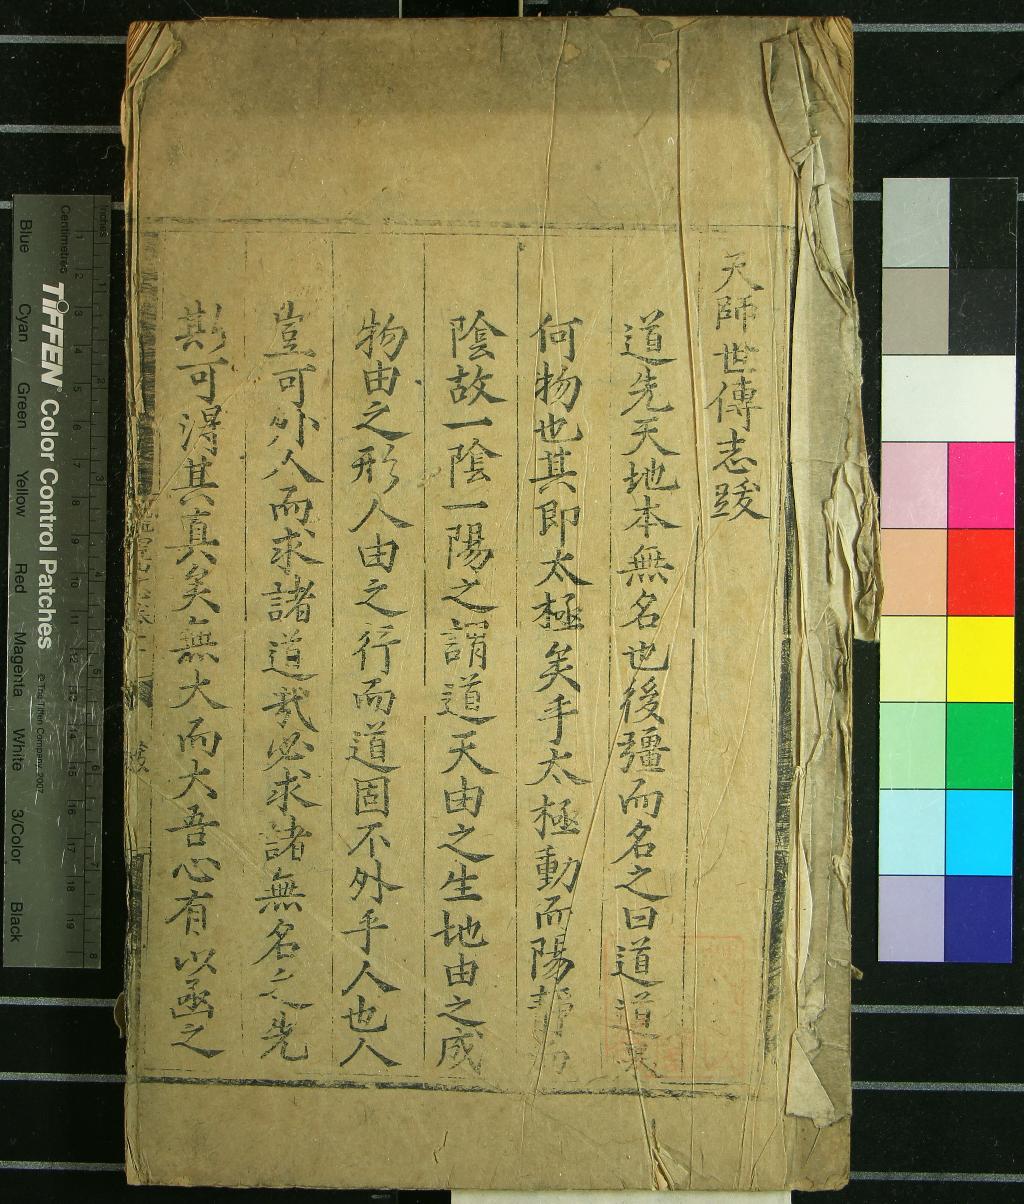 天師世傳志跋
道先天地本無名也後彊而名之曰道道果
何物也其即太極矣乎太極動而陽靜而
陰故一陰一陽之謂道天由之生地由之成
物由之形人由之行而道固不外乎人也人
豈可外人而求諸道哉必求諸無名之先
斯可得其真矣無大而大吾心有以函之
Inches
Centimetres
TIFFEN® Color Control Patches
© The Tiffen Company, 2007
Blue Cyan Green Yellow Red Magenta White 3/Color Black